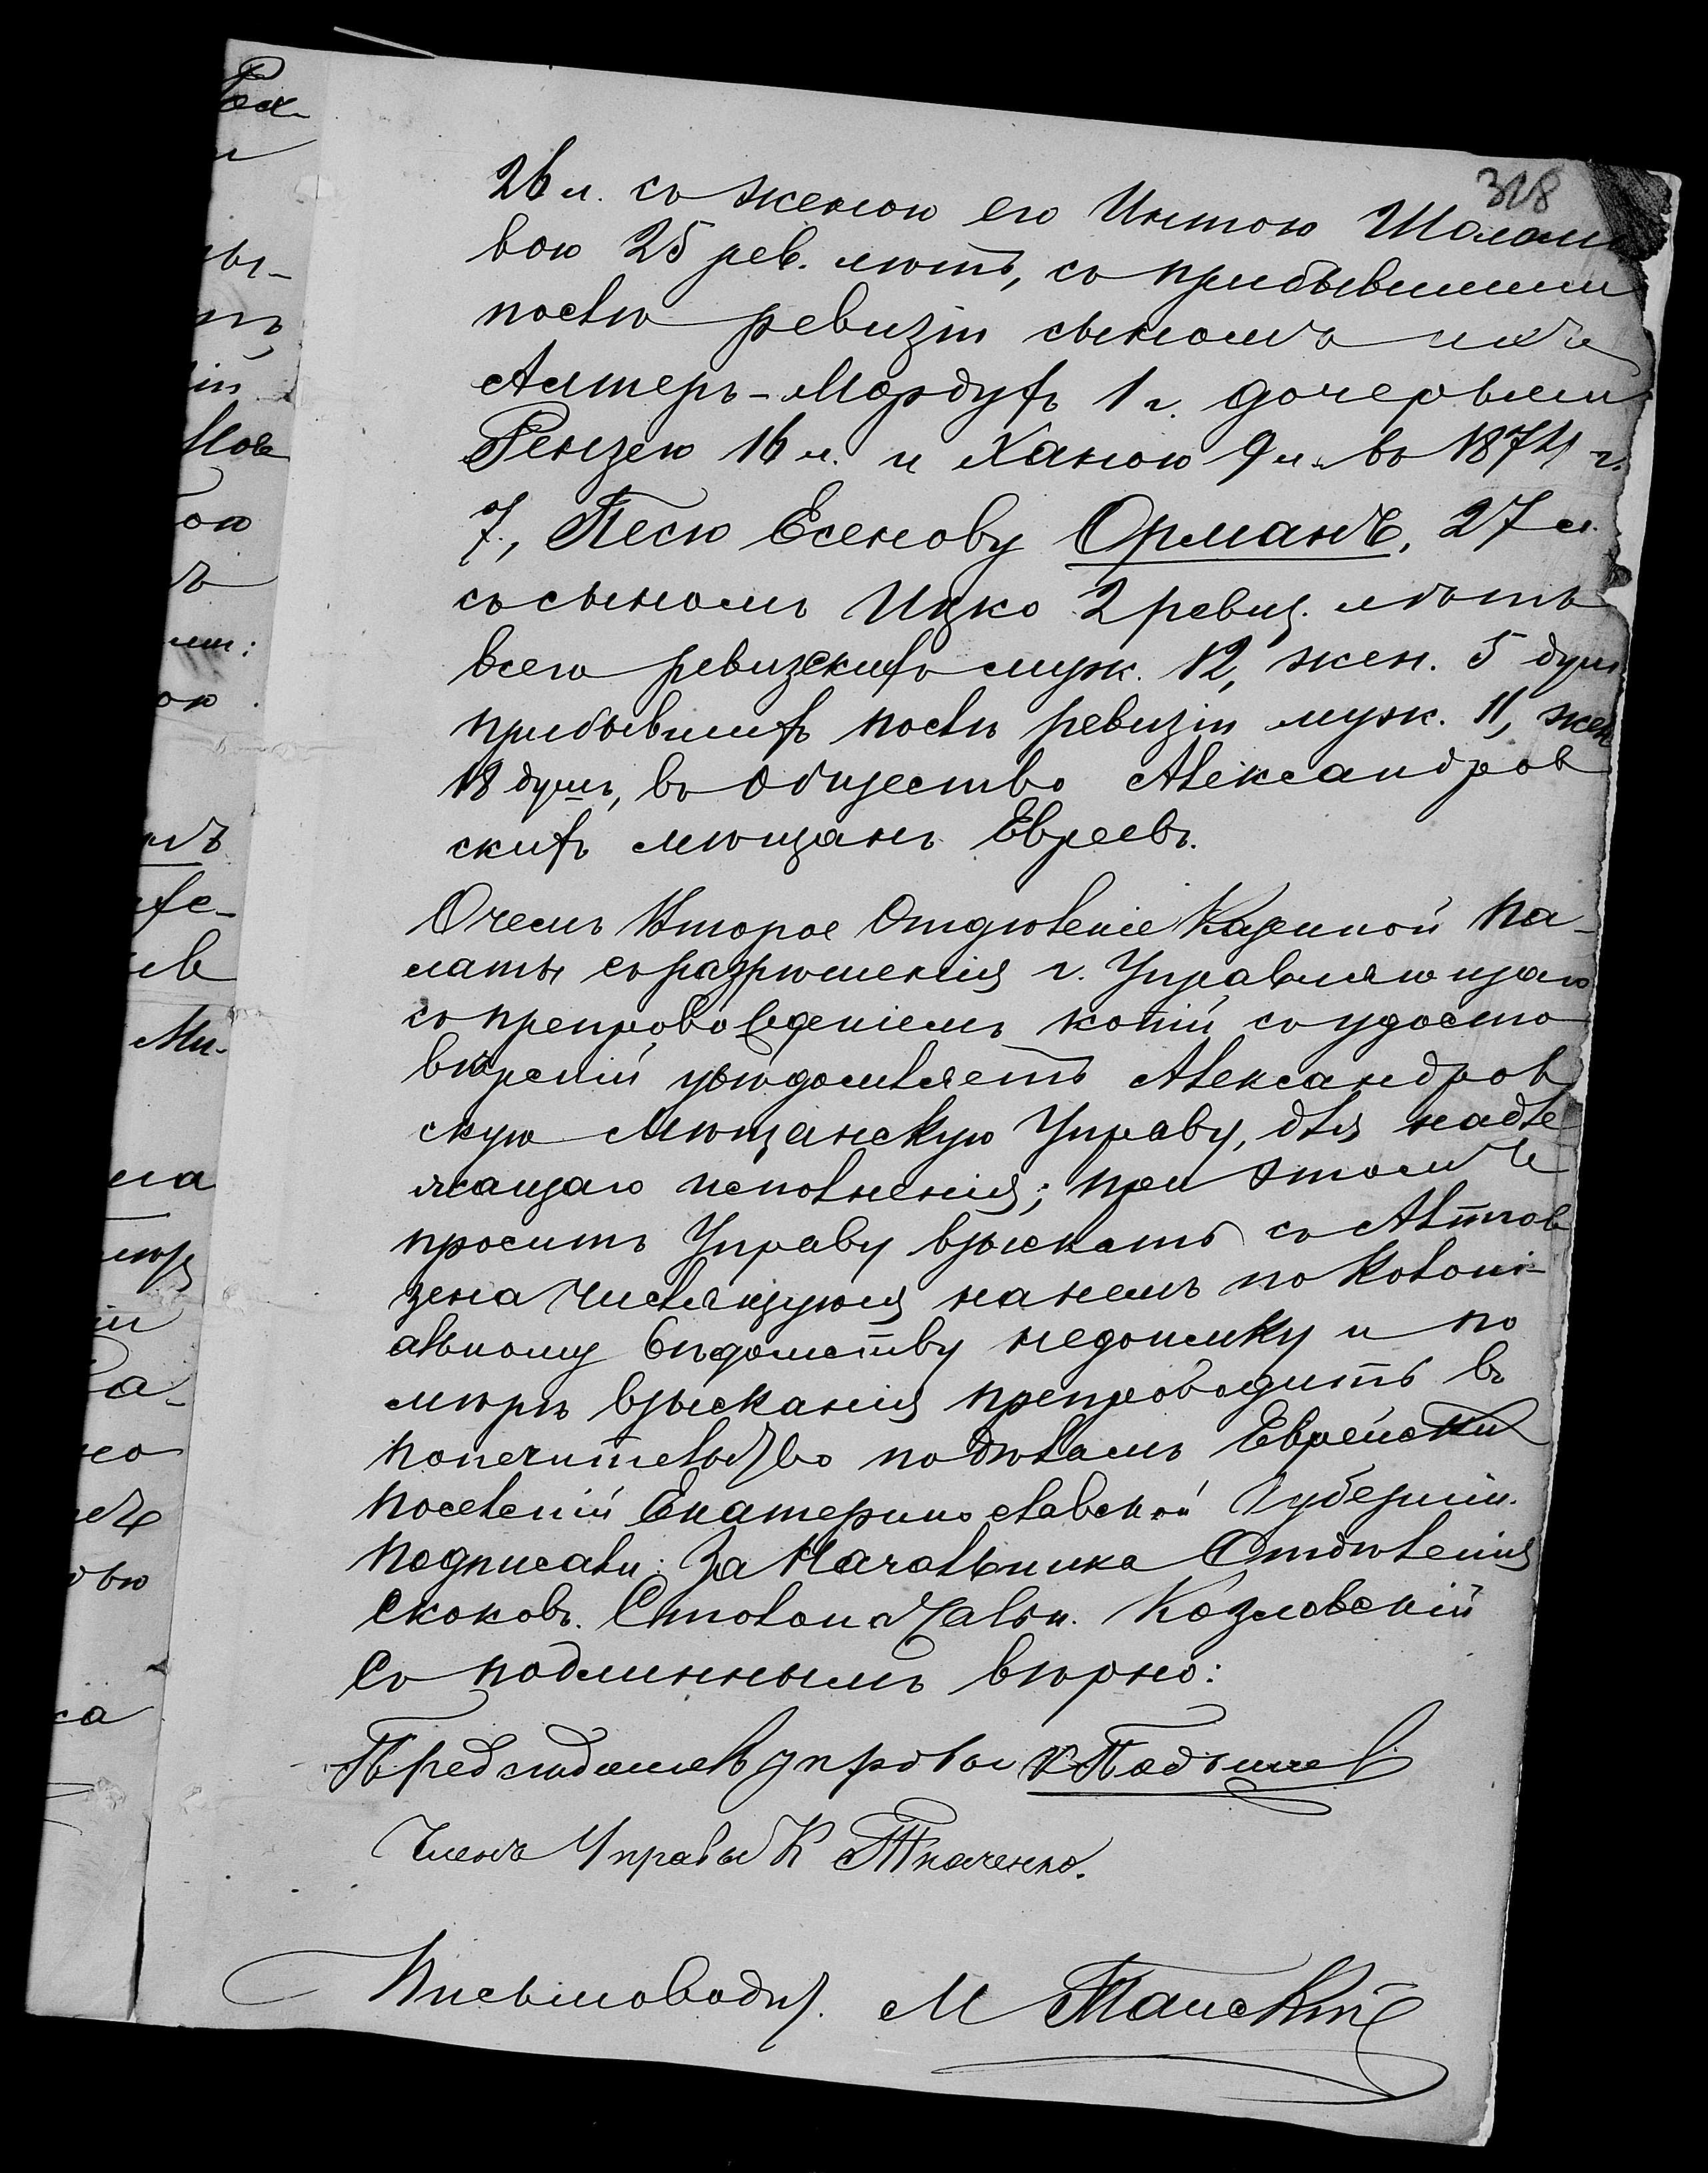 318
26 л. съ женою его Интою Шоломо
вою 25 рев. лѣтъ, съ прибывшими
послѣ ревизіи сыномъ ихъ
Алтеръ-Мордухъ 1 г. дочерьми
Рейзею 16 л. и Ханою 9 л. въ 1874 г.
7, Песю Есенову Орманъ, 27 л.
съ сыномъ Ицко 2 ревиз. лѣтъ
всего ревизскихъ муж. 12, жен. 5 душ
прибывшихъ послѣ ревизіи муж. 11, жен
18 душъ, въ общество Александров
скихъ мѣщанъ Евреевъ.
О чемъ Второе Отдѣленіе Казенной Па-
латы съ разрѣшенія г. Управляющаго
съ препровожденіемъ копій съ удосто
вѣреній увѣдомляетъ Александров
скую Мѣщанскую Управу, для надле
жащаго исполненія; при этомъ
проситъ Управу взыскать съ Альтгов
зена числящуюся на немъ по Колоні-
альному вѣдомству недоимку и по
мѣрѣ взысканія препроводить въ
попечительство по дѣламъ Еврейскихъ
поселеній Екатеринославской Губерніи.
Подписали: За Начальника Отдѣленія
Скоковъ. Столоначальн. Козловскій
Съ подлиннымъ вѣрно:
Предсѣдатель управы
Членъ Управы К Ткаченко.
Письмоводит. М